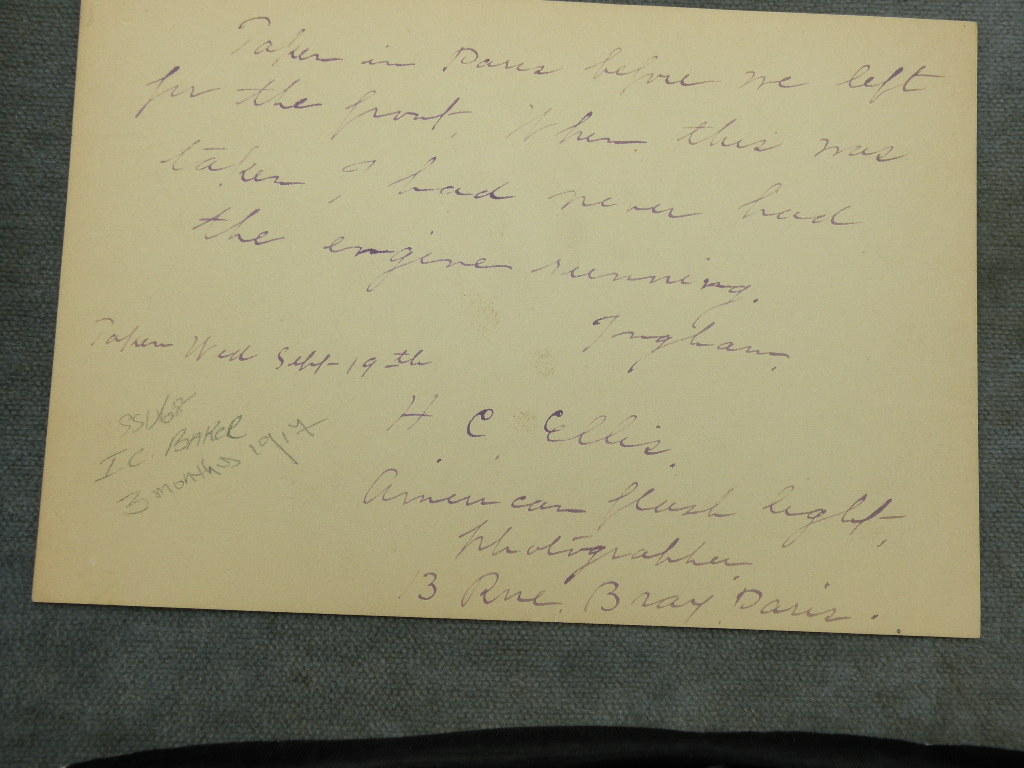 Taken in Paris before we left
for the front. When this was
taken I had never had
the engine running.
Ingham.
Taken Wed Sept-19th
SSU68
I.C. BAKER
3 months 1917
H. C. Ellis.
American flash light,
photographer
13 Rue. Bray, Paris.